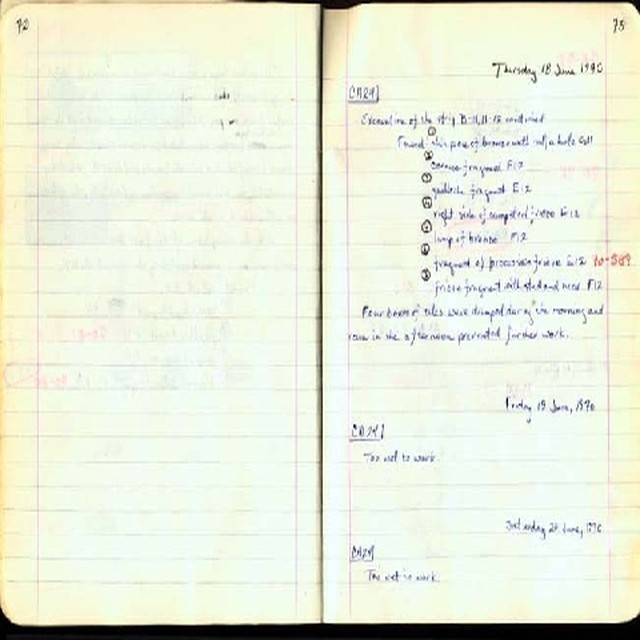 72
73
Thursday 18 June 1970
CA24
Excavation of the strip D-11, 11-12 continued
①
Found: thin piece of bronze with
②
fragment F12
③
fragment E12
④
right side of frieze E12
⑤
lump of bronze F12
⑥
fragment of procession frieze E12 70-589
⑦
frieze fragment with stud and F12
Four boxes of tiles were dumped during the morning and
rain in the afternoon prevented further work.
Friday 19 June, 1970
CA24
Too wet to work
Saturday 20 June, 1970
CA24
Too wet to work